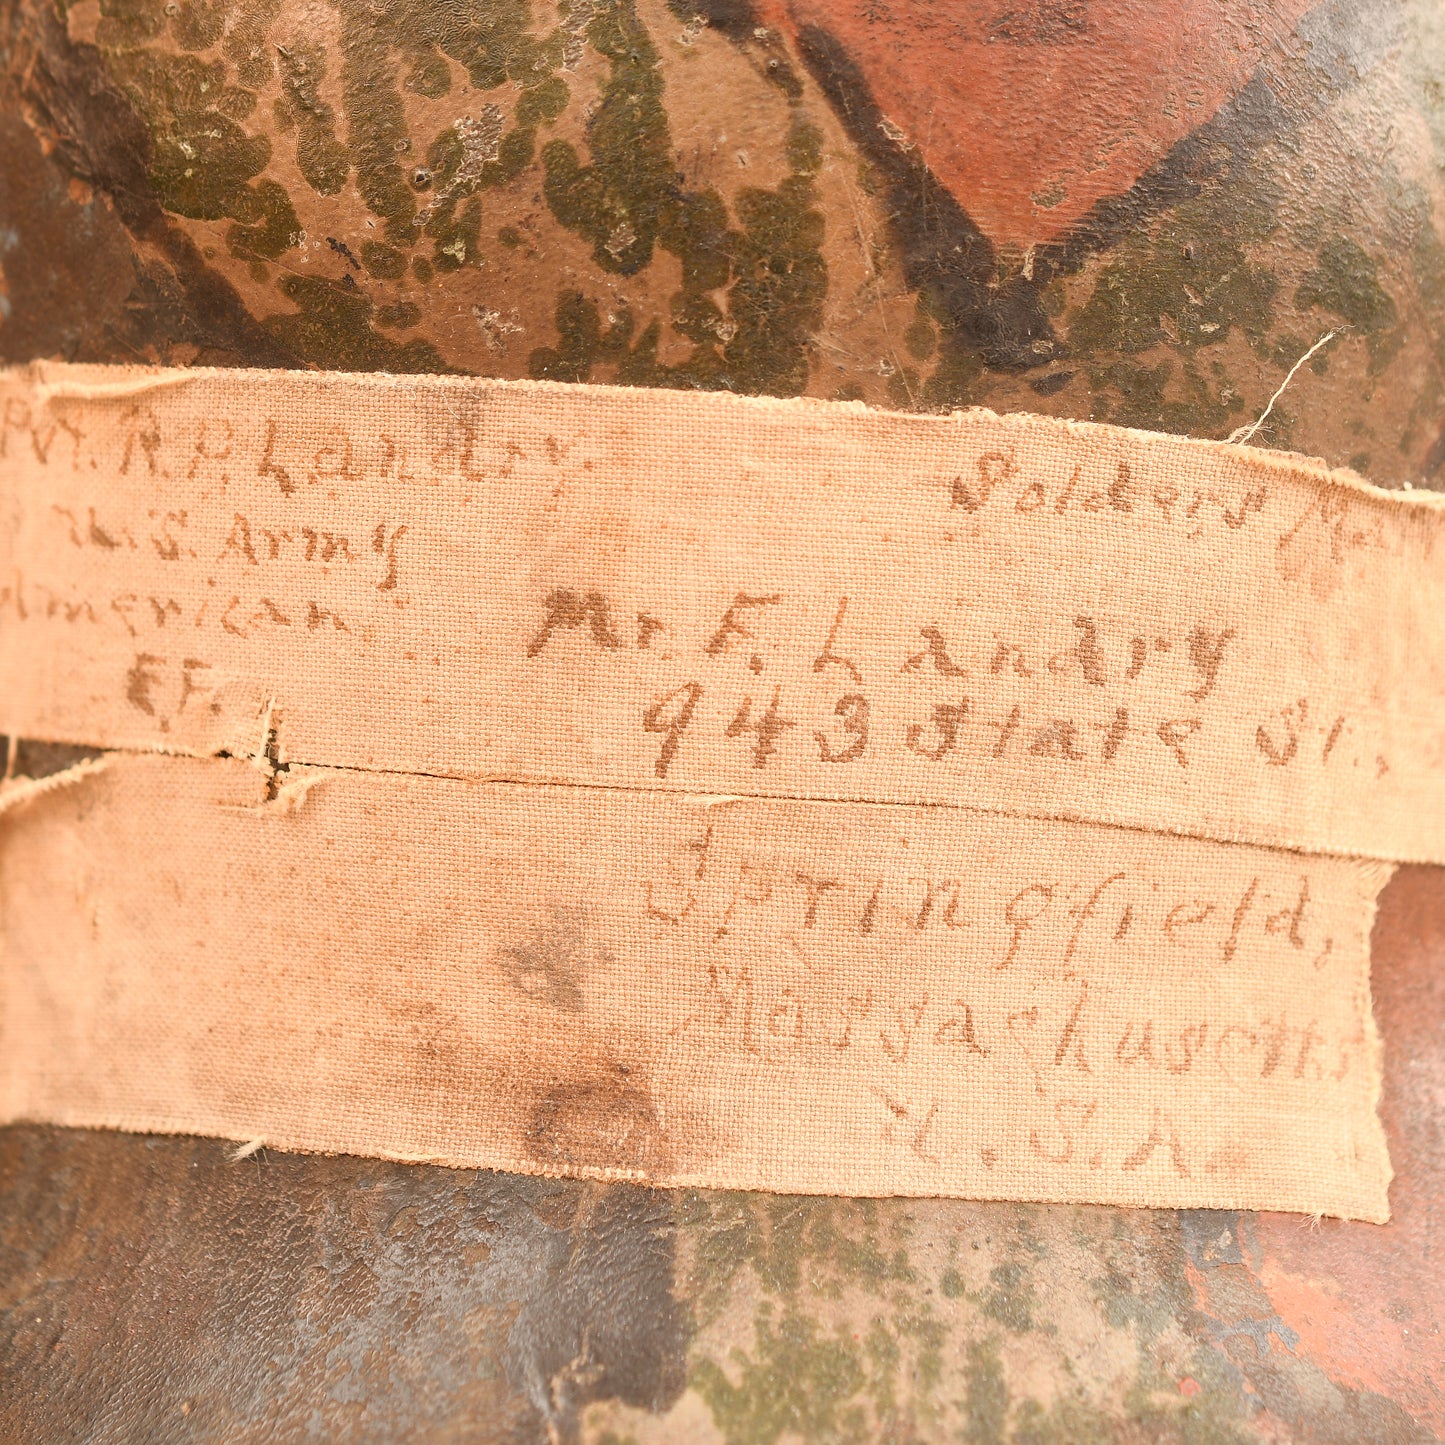 Pvt. R.P. Landry.
U.S. Army
American
E.F.
Soldiers
Mr. F. Landry
943 State St.,
Springfield,
Massachusetts
U.S.A.